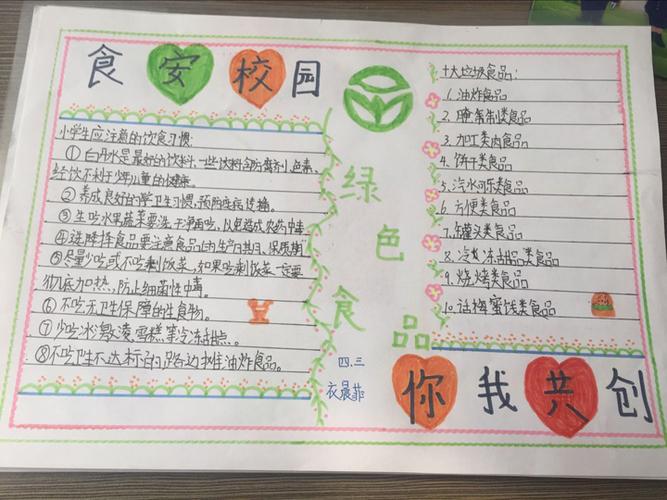 食安校园
小学生应注意的饮食习惯:
①白开水是最好的饮料,一些饮料含防腐剂、色素,
经饮不利于少年儿童的健康。
②养成良好的学卫生习惯,预防疾病传播。
③生吃水果蔬菜要洗干净再吃,以免造成农药中毒
④选择食品要注意食品的生产日期、保质期
⑤尽量少吃或不吃剩饭菜,如果吃剩饭菜一定要
彻底加热,防止细菌性中毒。
⑥不吃无卫生保障的生食物。
⑦少吃冰激凌雪糕等冷冻甜点。
⑧不吃卫生不达标的路边摊油炸食品。
绿色食品
四.三
衣晨菲
十大垃圾食品:
1.油炸食品
2.腌制类食品
3.加工类肉食品
4.饼干类食品
5.汽水可乐类食品
6.方便类食品
7.罐头类食品
8.冷冻甜品类食品
9.烧烤类食品
10.话梅蜜饯类食品
你我共创